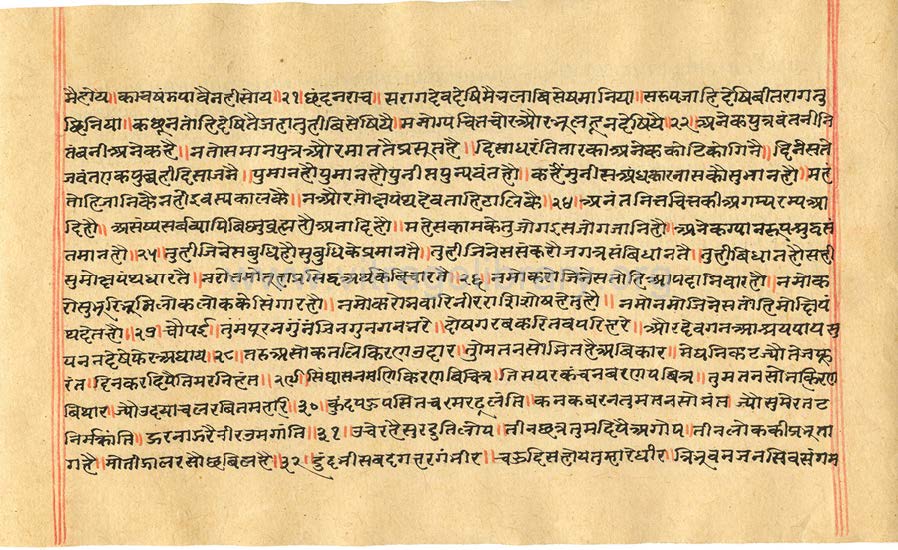 मैहोय॥काचषंडपावैनहीसोय॥२१॥छंदनराच॥सरागदेवदेषिमैभलाबिसेषमानिया॥सरुपजाहिदेषिबीतरागतु
छिनिया॥कछूनतोहिदेषितैजहातुहीबिसेषियै॥मनोग्यचितचोरऔरभूलहूनदेषियै॥२२॥अनेकपुत्रवंतनीनि
तंबनीअनेकहै॥नतोसमानपुत्रऔरमाततैप्रसूतहै॥दिसाधरंतितारकाअनेककोटिकोगिनै॥दिनेसते
जवंतएकपुरबहीदिसाजनै॥पुमानहौपुमानहौपुनीतपुन्यवंतहौ॥कहैंमुनीसअंधकारनासकौसुभानहौ॥मह
तोहिजानिकैनहोइवस्यकालकै॥नऔरमोक्षपंथदेवतोहिटालिकै॥२४॥अनंतनितचितकीअगम्यरम्यआ
दिहौ॥असंष्यसर्वब्यापिबिष्णुब्रह्महौअनादिहौ॥महेसकामकेतुजोगईसजोगजानिहौ॥अनेकग्यानरूपसुद्धसं
तमानहौ॥२५॥तुहीजिनेसबुधिहौसुबुधिकेप्रमानतै॥तुहीजिनेससंकरोजगत्रसंबिधानतै॥तुहीबिधातहैसही
सुमोक्षपंथधारतै॥नरोतमोतुहीप्रसिधअर्थकेबिचारतै॥२६॥नमोकरोजिनेसतोहिआपदानिवारहो॥नमोक
रोसुभूरिभूमिलोकलोककेसिंगारहो॥नमोकरोभवाब्धिनीररासिसोषहेतुहो॥नमोनमोजिनेसतोहिमोक्षपं
थदेतहो॥२७॥चौपई॥तुमपूरनगुनजिनगुनगनभरे॥दोषगरबकरितवपरिहरे॥औरदेवगनआश्रयपायसु
पननदेषेफेरअघाय॥२८॥तरुअसोकतलिकिरणउदार॥तुमतनसोभितहैअबिकार॥मेघनिकटज्यौतेजफु
रंत।दिनकरदिपैतिमरनिहंत॥२९॥सिंघासनमणिकिरणबिचित्र॥तिसपरकंचनबरणपबित्र॥तुमतनसोभकिरण
बिथार॥ज्यौउदयाचलरबितमहारि॥३०॥कुंदपहुपसितचमरढुलंति॥कनकबरनतुमतनसोभंत॥ज्योसुमेरतट
निर्मलकांति॥झरनाझरैनीरउमगांति॥३१॥उचेरहैसुरदुतिलोप॥तीनछत्रतुमदिपैअगोप॥तीनलोककीप्रभुता
गहै॥मोतीझालरसौछबिलहै॥३२॥दुंदभीसबदगहरगंभीर॥चहुदिसहोयतुमारेधीर॥त्रिभूवनजनसिवसंगम